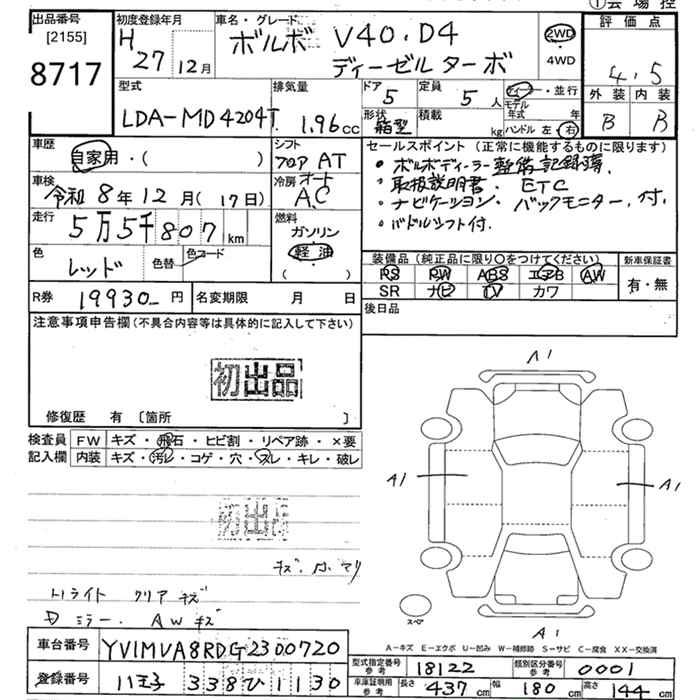 ①会場控
出品番号
[2155]
8717
初度登録年月
H 27 12月
車名・グレード
ボルボ V40.D4
ディーゼルターボ
2WD
・
4WD
評価点
4.5
外装 内装
B B
型式
LDA-MD4204T
排気量
1.96cc
ドア
5
定員
5人
ディーラー・並行
モデル
年式 年
形状
箱型
積載
kg
ハンドル 左・右
車歴
自家用・( )
シフト
フロア AT
セールスポイント(正常に機能するものに限ります)
• ボルボディーラー整備記録簿.
• 取扱説明書. ETC
• ナビゲーション. バックモニター.付.
• パドルシフト付.
車検
令和8年12月(17日)
冷房 オート
A.C
走行
5万5千807km
燃料
ガソリン
軽油
( )
色
レッド
色替
色コード
装備品(純正品に限り○をつけてください)
新車保証書
PS PW ABS エアB AW
SR ナビ TV カワ
有・無
R券 19930- 円
名変期限 月 日
後日品
注意事項申告欄(不具合内容等は具体的に記入して下さい)
初出品
修復歴 有〔箇所 〕
検査員
記入欄
FW キズ・飛石・ヒビ割・リペア跡・×要
内装 キズ・汚レ・コゲ・穴・スレ・キレ・破レ
初出品
キズ.小マリ
Hライト クリア キズ
Dミラー. AWキズ
A1
A1
A1
A1
スペア
A-キズ E-エクボ U-凹み W-補修跡 S-サビ C-腐食 XX-交換済
車台番号 YV1MVA8RDG2300720
登録番号 八王子 338ひ1130
型式指定番号
参考
18122
類別区分番号
参考
0001
車庫証明用
参考
長さ 437cm 幅 180cm 高さ 144cm